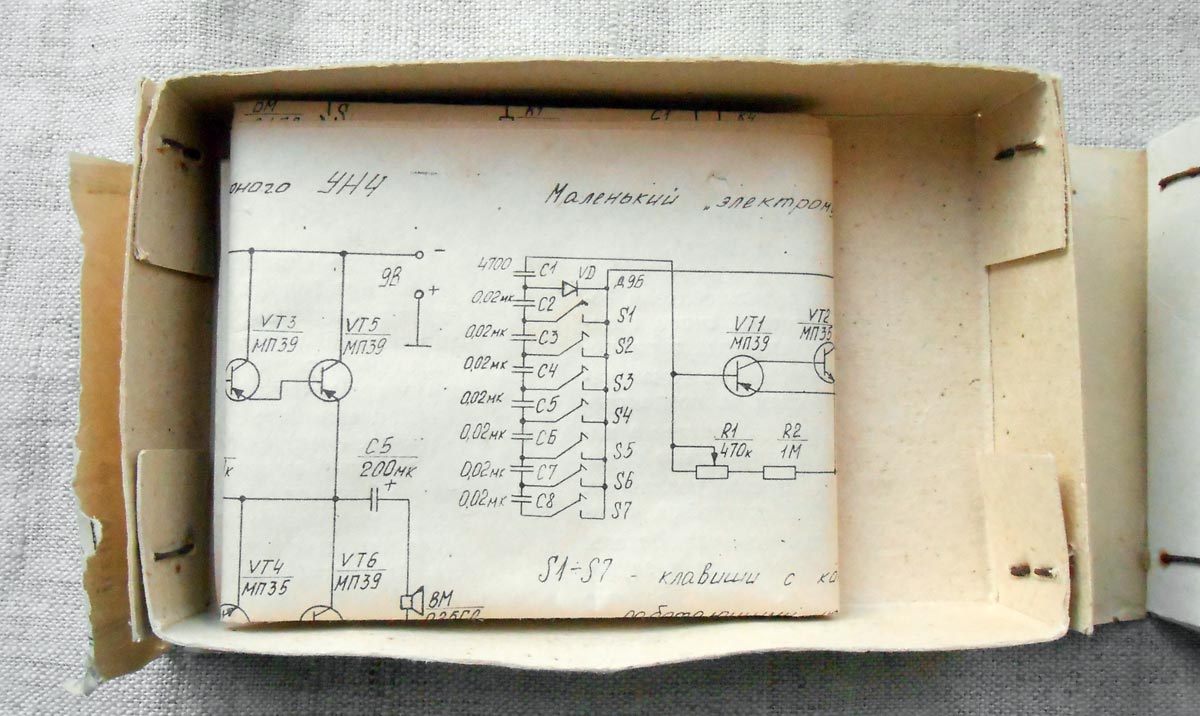 ВМ
C1
УНЧ
Маленький „электрон
9В
−
+
VT3
МП39
VT5
МП39
C5
200мк
+
VT4
МП35
VT6
МП39
ВМ
4700 C1 VD
Д9Б
0,02мк C2 S1
0,02мк C3 S2
0,02мк C4 S3
0,02мк C5 S4
0,02мк C6 S5
0,02мк C7 S6
0,02мк C8 S7
VT1
МП39
VT2
МП35
R1
470к
R2
1М
S1÷S7 - клавиши с